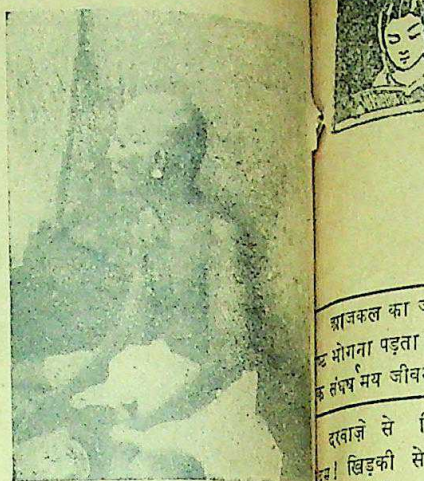 आजकल का
भोगना पड़ता
संघर्षमय जीव
दरवाज़े से
खिड़की से